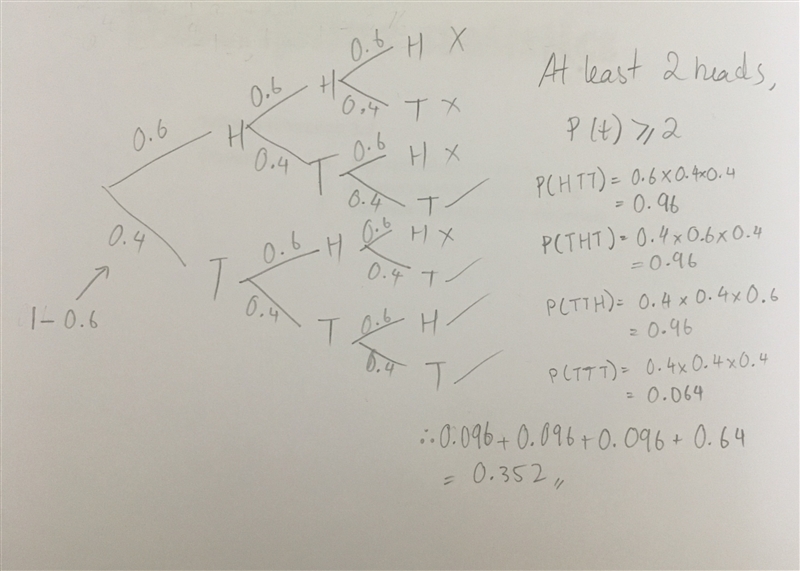 0.6 H X
0.6 H 0.4 T X
0.6 H 0.4 T 0.6 H X
0.4 T ✓
0.4 T 0.6 H 0.6 H X
0.4 T ✓
0.4 T 0.6 H ✓
0.4 T ✓
1-0.6
At least 2 heads,
P(t) ⩾ 2
P(HTT) = 0.6 x 0.4 x 0.4
= 0.96
P(THT) = 0.4 x 0.6 x 0.4
= 0.96
P(TTH) = 0.4 x 0.4 x 0.6
= 0.96
P(TTT) = 0.4 x 0.4 x 0.4
= 0.064
∴ 0.096 + 0.096 + 0.096 + 0.64
= 0.352 〃